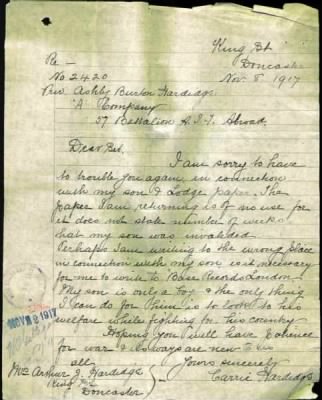 King St
Doncaster
Nov. 8 1917
Re —
No 2420
Priv Ashby Burton Hardidge
"A" Company
37 Battalion A.I.F. Abroad.
Dear Sir,
I am sorry to have
to trouble you again in connection
with my son & Lodge paper. The
paper I am returning is of no use for
it does not state number of weeks
that my son was invalided
Perhaps I am writing to the wrong place
in connection with my son is it necessary
for me to write to Base Records London
My son is only a boy & the only thing
I can do for him is to look to his
welfare while fighting for his country
Hoping you will have patience
for war & its ways are new to us
all.
Yours sincerely
Carrie Hardidge
NOV 12 1917
Mrs Arthur J. Hardidge
King St
Doncaster